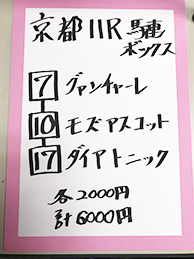 京都11R 馬連
ボックス
7 グァンチャーレ
10 モズアスコット
17 ダイアトニック
各2000円
計6000円